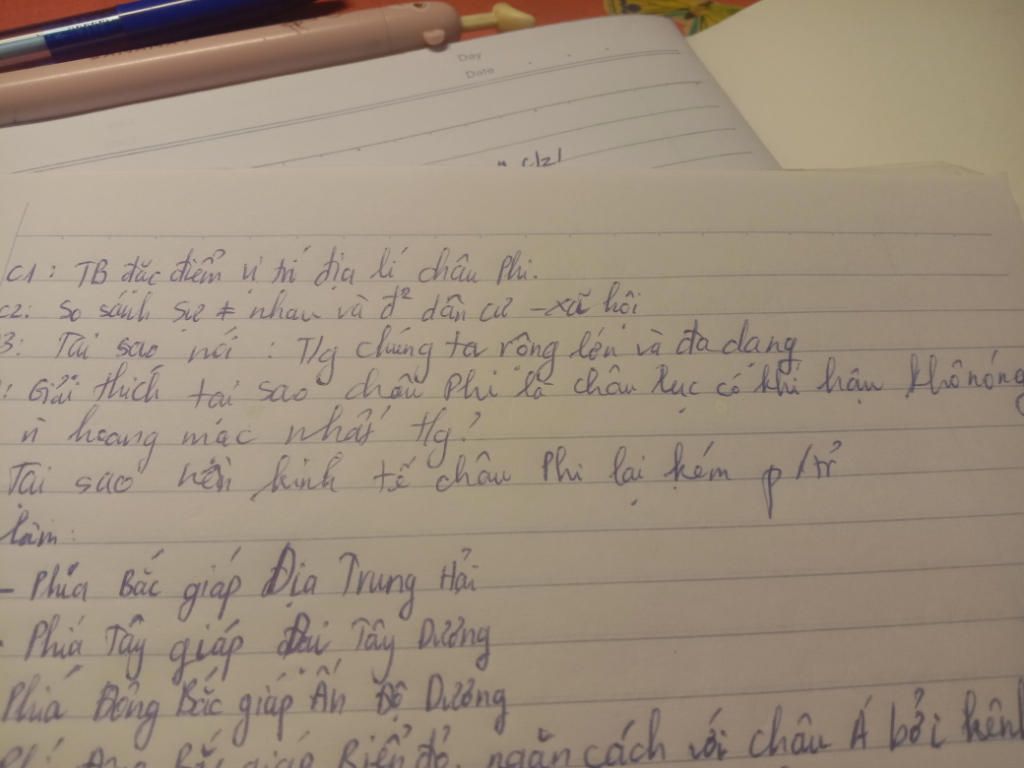 Day
Date
C1: TB đặc điểm vị trí địa lí châu Phi.
C2: So sánh sự ≠ nhau và đ² dân cư - xã hội
3: Tại sao nói: T/g chúng ta rộng lớn và đa dạng
: Giải thích tại sao châu Phi là châu lục có khí hậu khô nóng
n hoang mạc nhất t/g?
Tại sao nền kinh tế châu Phi lại kém p/tr
làm:
- Phía Bắc giáp Địa Trung Hải
- Phía Tây giáp Đại Tây Dương
Phía Đông Bắc giáp Ấn Độ Dương
giáp Biển đỏ, ngăn cách với châu Á bởi kênh